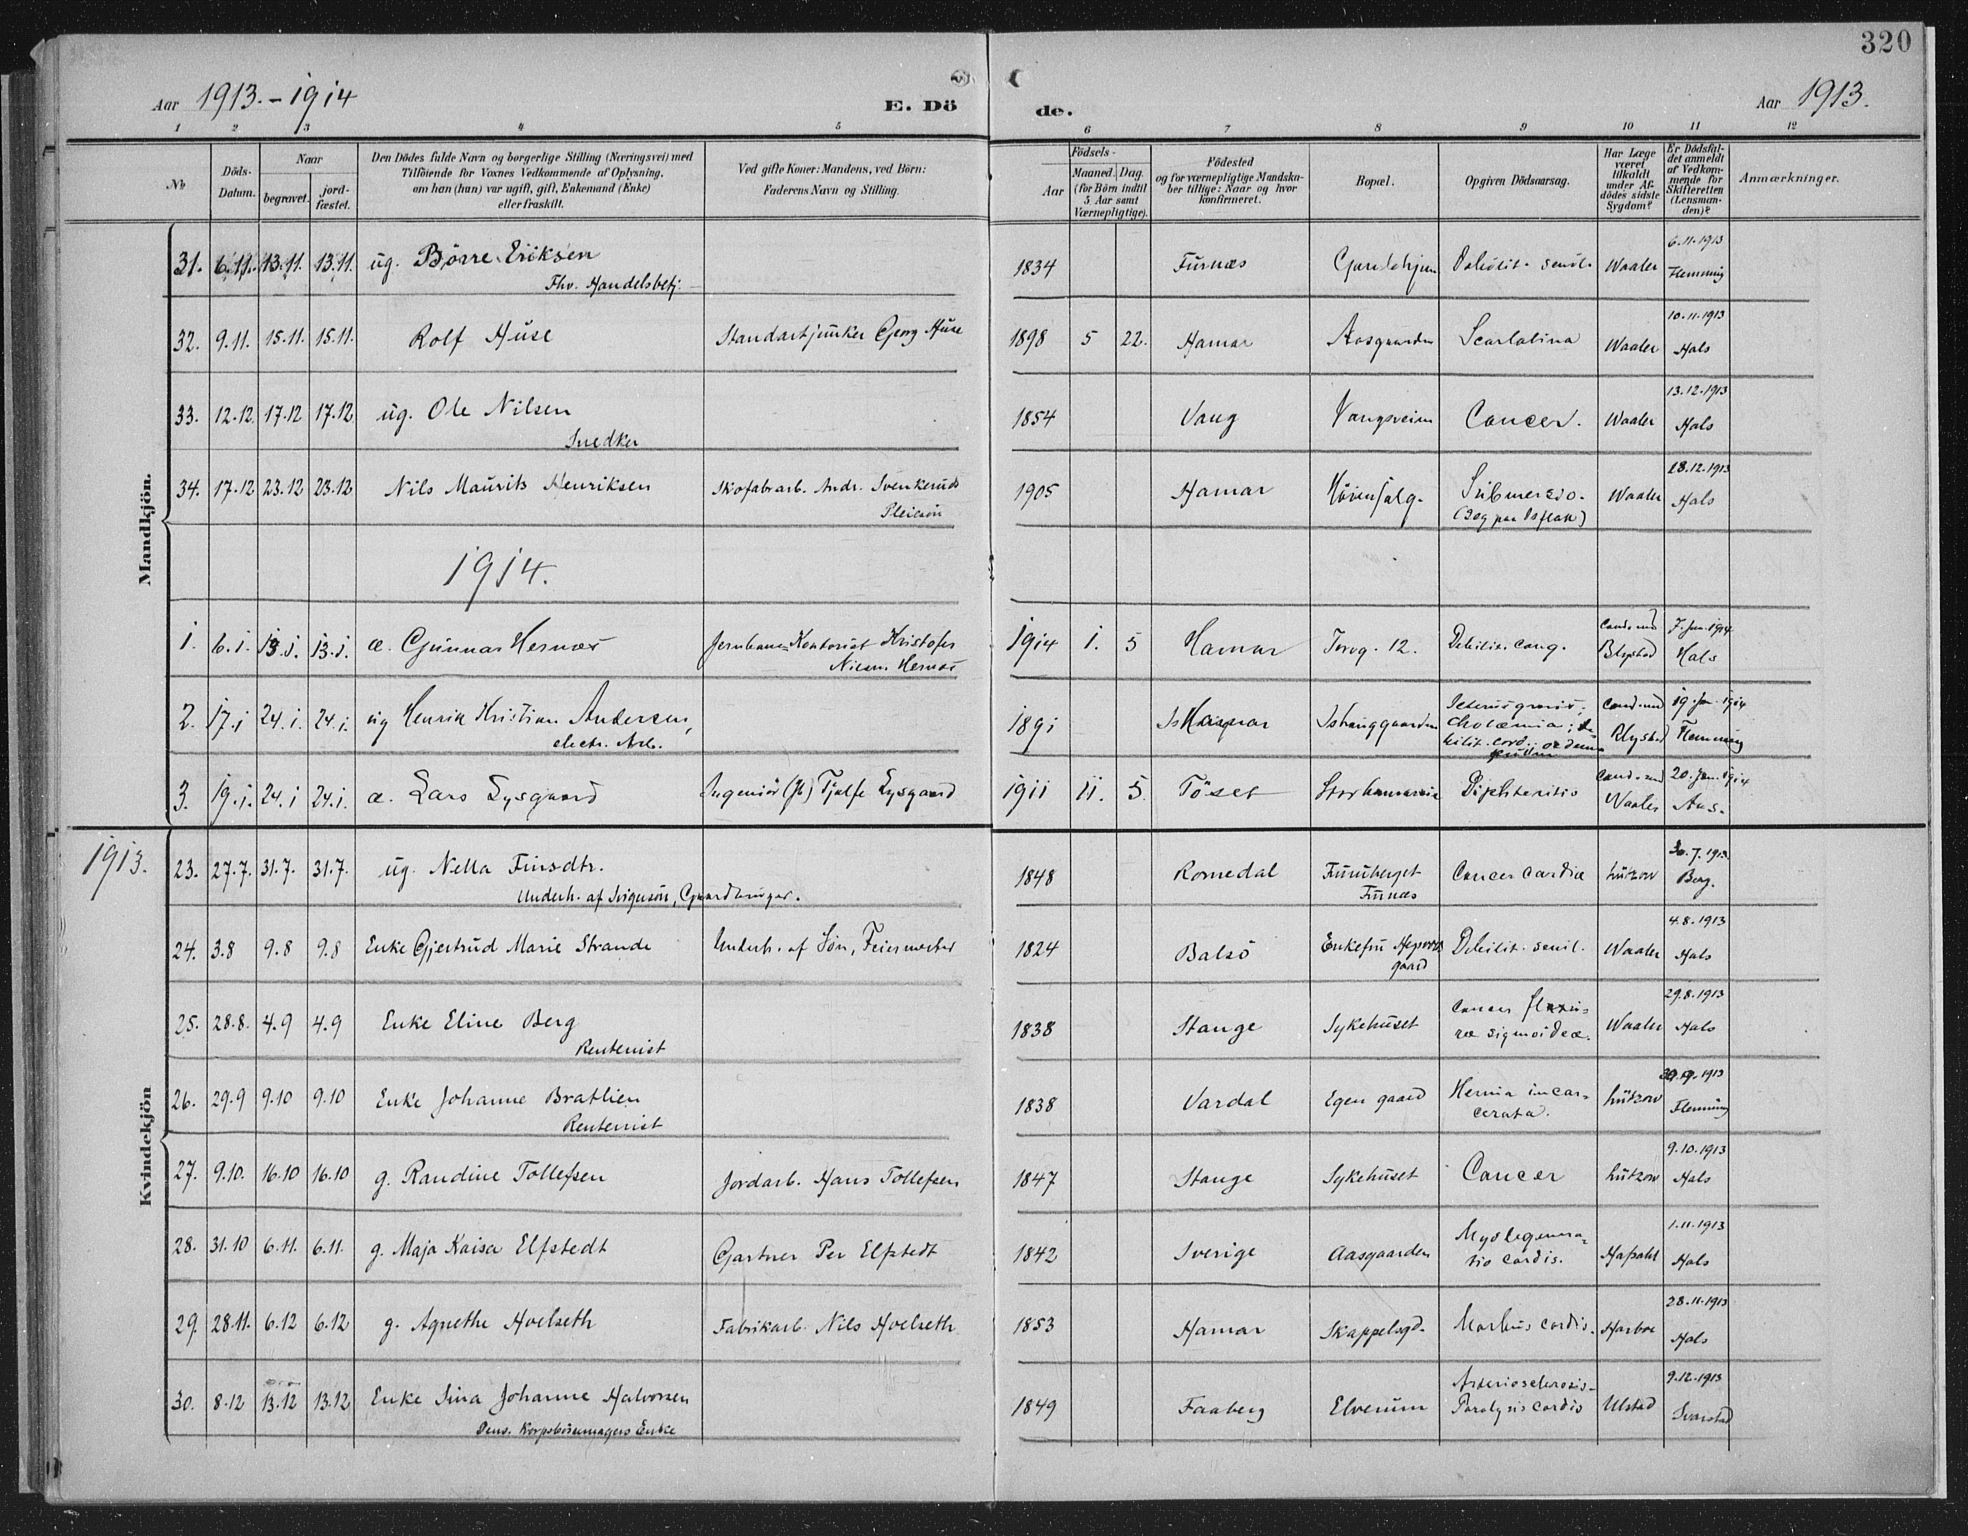 320
Aar 1913.-1914
E. Dö
de.
Aar 1913.
1 2 3 4 5 6 7 8 9 10 11 12
No.
Döds-Datum.
Naar
begravet.
jord-fæstet.
Den Dödes fulde Navn og borgerlige Stilling (Næringsvei) med
Tilföiende for Voxnes Vedkommende af Oplysning,
om han (hun) var ugift, gift, Enkemand (Enke)
eller fraskilt.
Ved gifte Koner: Mandens, ved Börn:
Faderens Navn og Stilling.
Födsels-
Aar
Maaned. Dag.
(for Börn indtil
5 Aar samt
Værnepligtige).
Födested
og for værnepligtige Mandska-
ber tillige: Naar og hvor
konfirmeret.
Bopæl.
Opgiven Dödsaarsag.
Har Læge
været
tilkaldt
under Af-
dödes sidste
Sygdom?
Er Dödsfal-
det anmeldt
af Vedkom-
mende for
Skifteretten
(Lensman-
den)?
Anmærkninger.
Mandkjön.
31. 6.11. 13.11. 13.11. ug. Börre Eriksen 1834 Furnæs Debilit. senil. Waaler 6.11.1913
Fhv. Handelsbetj. Flemming
32. 9.11. 15.11. 15.11. Rolf Huse Standartjunker Georg Huse 1898 5 22. Hamar Aasgaarden Scarlatina Waaler 10.11.1913
Hals
33. 12.12 17.12 17.12 ug. Ole Nilsen 1854 Vang Vangsveien Cancer. Waaler 13.12.1913
Snedker Hals
34. 17.12 23.12 23.12 Nils Maurits Henriksen Skofabrarb. Andr. Svenkeruds 1905 Hamar Submersio. Waaler 18.12.1913
Pleiesön Hals
1914.
1. 6.1. 13.1. 13.1. æ. Gunnar Hernæs Jernbane-Kontorist Kristofer 1914 1. 5 Hamar Torvg. 12. Debilit. cong. Cand. med 7. Jan. 1914
Nilsen Hernæs Blystad Hals
2. 17.1 24.1. 24.1. ug Henrik Kristian Andersen, 1891 Hamar Icterus gravis, Cand. med 19. Jan. 1914
electr. Arb. cholæmia; de-
bilit. cord. Blystad Flemming
3. 19.1. 24.1 24.1. æ. Lars Lysgaard Ingeniör Tjalfe Lysgaard 1911 11. 5. Töset Storhamarveien Diphteritis Cand. med 20. Jan. 1914
Waaler Aas.
1913.
Kvindekjön
23. 27.7. 31.7. 31.7. ug. Nella Finsdtr. 1848 Romedal Furuberget Cancer cardiæ Lützow 30.7.1913.
Underh. af Svigersön, Gaardbruger. Furnæs Berg.
24. 3.8 9.8 9.8 Enke Gjertrud Marie Strande Underh. af Sön, Feiermester 1824 Balsö Enkefru Debilit. senil. Waaler 4.8.1913
gaard Hals
25. 28.8. 4.9 4.9 Enke Eline Berg 1838 Stange Sykehuset Cancer flexu- Waaler 29.8.1913
Rentenist ræ sigmoideæ. Hals
26. 29.9 9.10 9.10 Enke Johanne Bratlien 1838 Vardal Egen gaard Hernia incar- Lützow 1913
Rentenist cerata. Flemming
27. 9.10. 16.10 16.10 g. Randine Tollefsen Jordarb. Hans Tollefsen 1847 Stange Sykehuset Cancer Lützow 9.10.1913
Hals
28. 31.10 6.11. 6.11. g. Maja Kaisa Elfstedt Gartner Per Elfstedt 1842 Sverige Aasgaarden Myodegenera- 1.11.1913
tio cordis. Hals
29. 28.11. 6.12 6.12 g. Agnethe Hoelseth Fabrikarb. Nils Hoelseth 1853 Hamar Skappelsgd. Morbus cordis. Harboe 28.11.1913
Hals
30. 8.12 13.12 13.12 Enke Sina Johanne Halvorsen 1849 Faaberg Elverum Arteriosclerosis- Ulstad 9.12.1913
Pens. Korpsbösemagers Enke Paralysis cordis